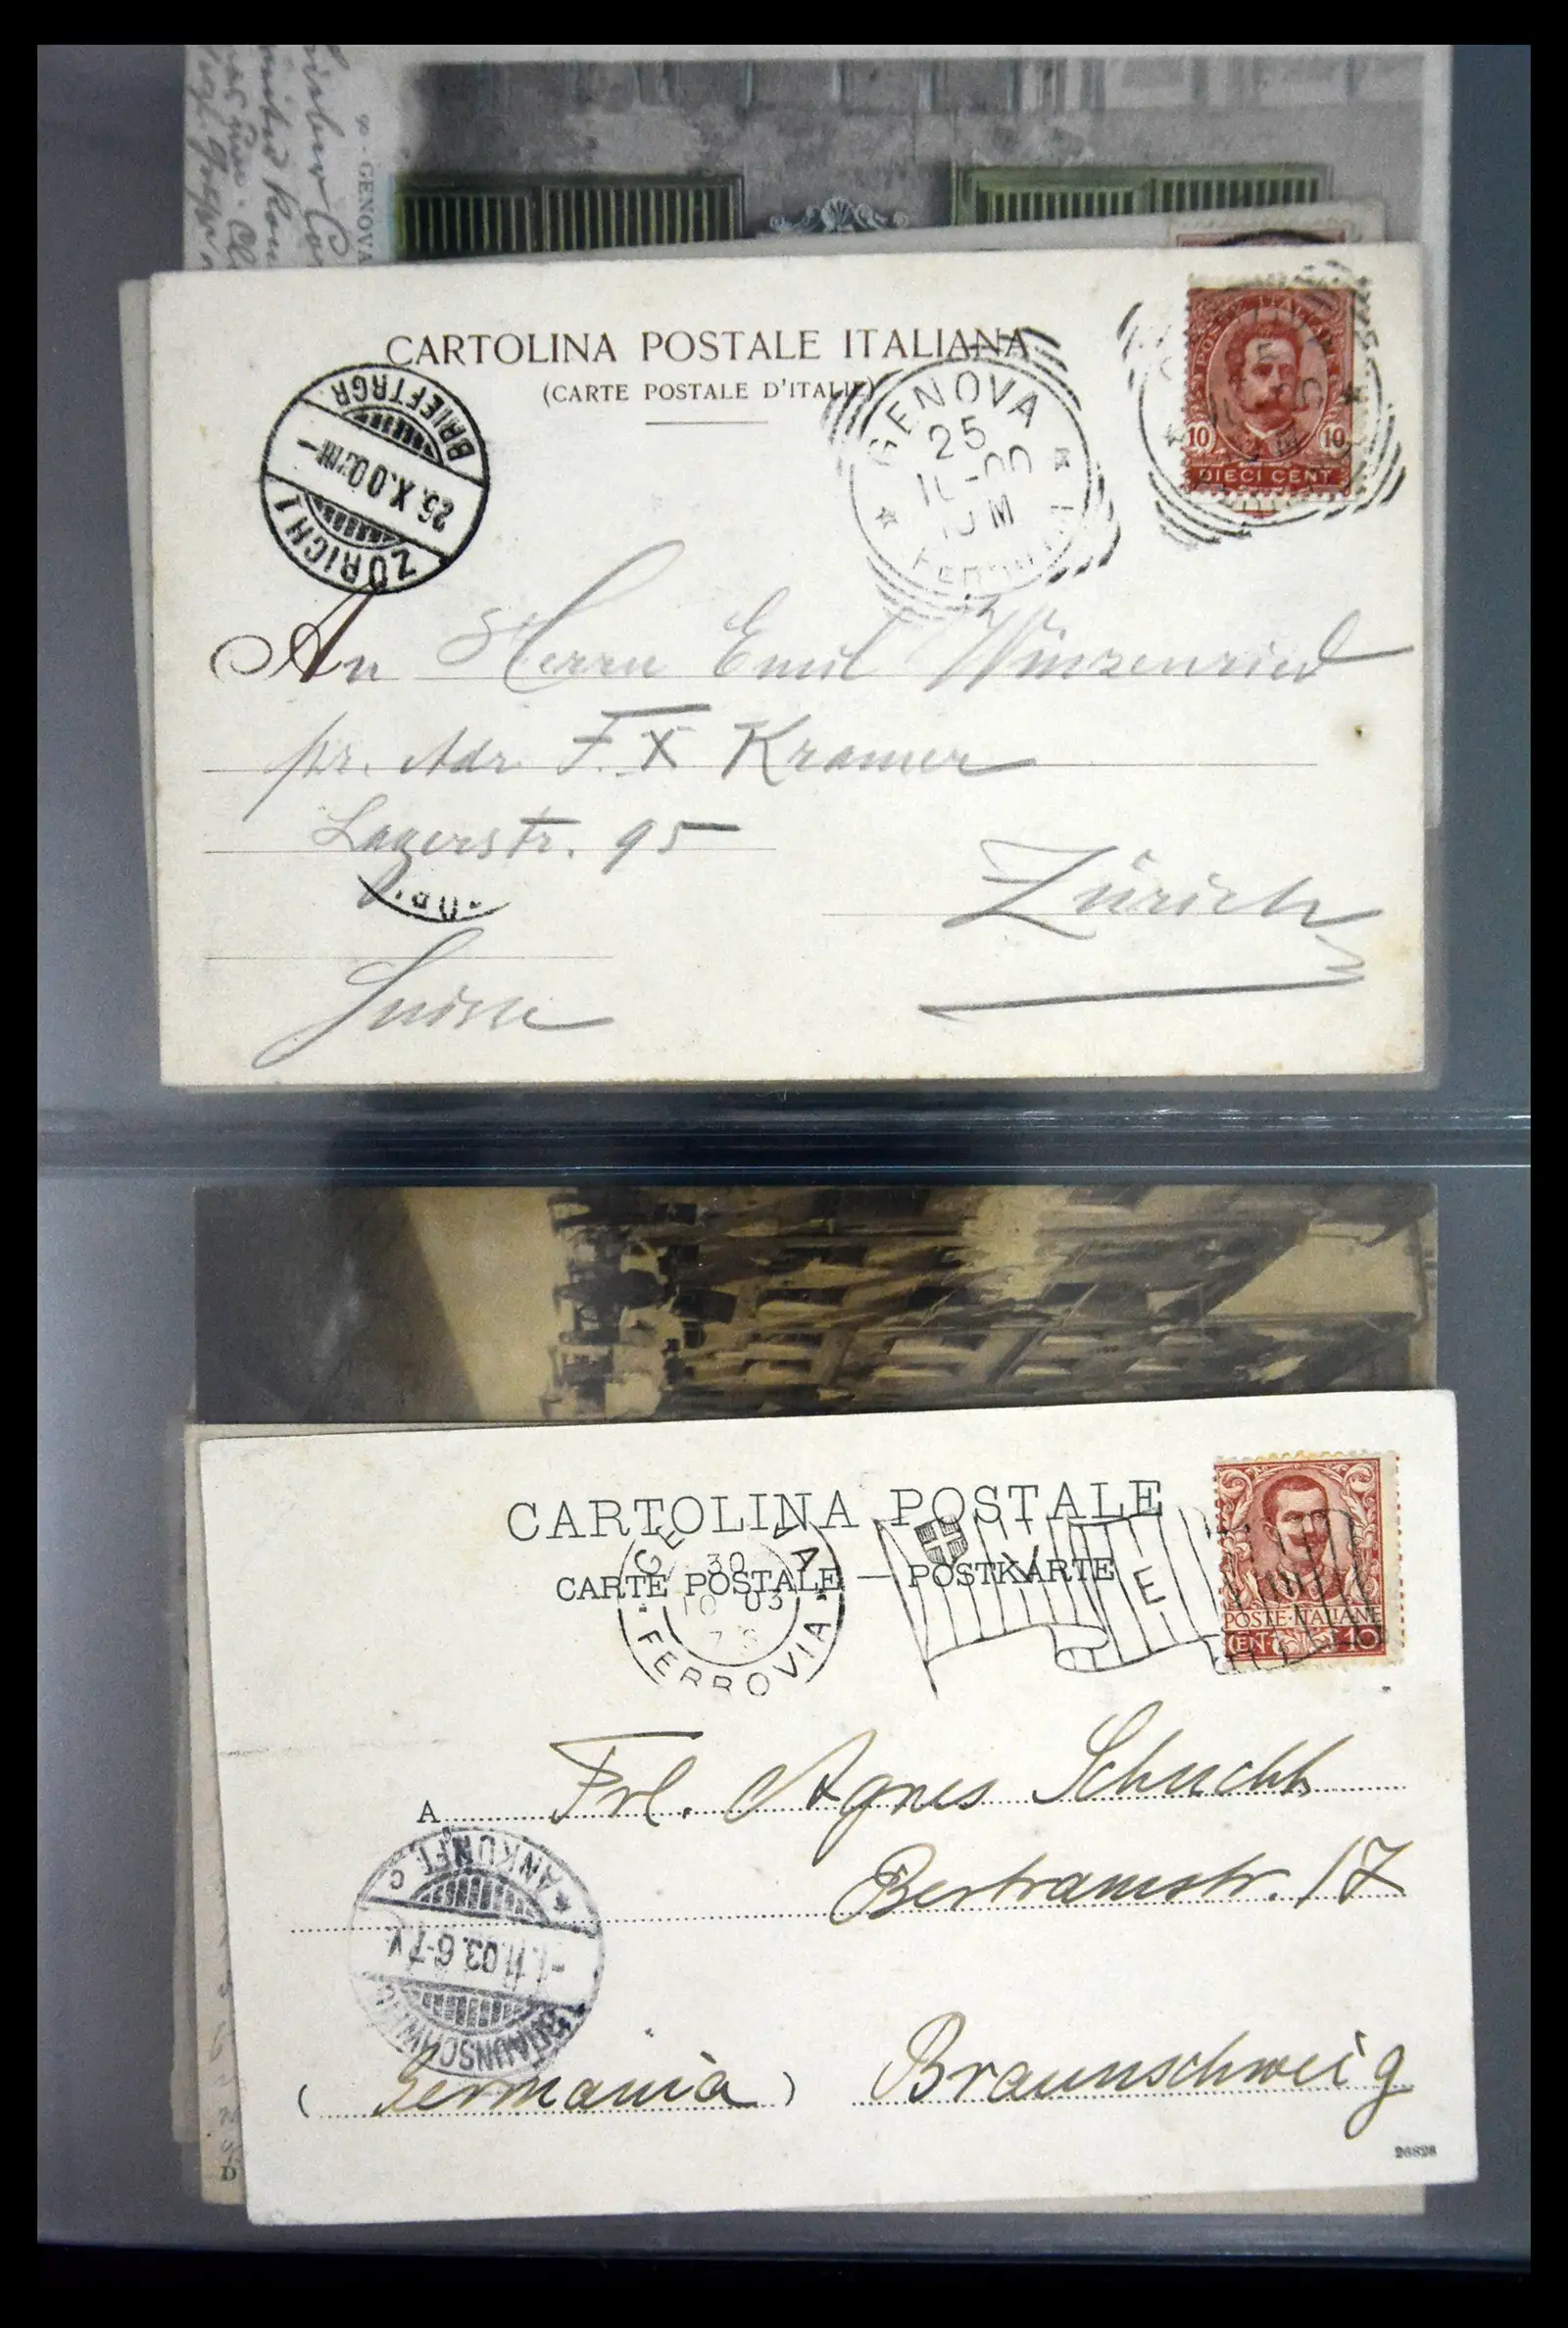 90 - GENOVA
CARTOLINA POSTALE ITALIANA
(CARTE POSTALE D'ITALIE)
POSTE ITALIANE
10 10
DIECI CENT
GENOVA
25
10-00
10 M
FERROVIA
BRIEFTRGR.
26.X.00.VIII-
ZÜRICH 1
An Herrn Emil Winzenried
pr. Adr. F. X Kramer
Lagerstr. 95
Zürich
Suisse
CARTOLINA POSTALE
CARTE POSTALE — POSTKARTE
30
10 03
FERROVIA
V E
POSTE·ITALIANE
CENT 10
A Frl. Agnes Schucht
Bertramstr. 17
ANKUNFT. C
-1.11.03.6-7V.
BRAUNSCHWEIG
(Germania) Braunschweig
26828
D